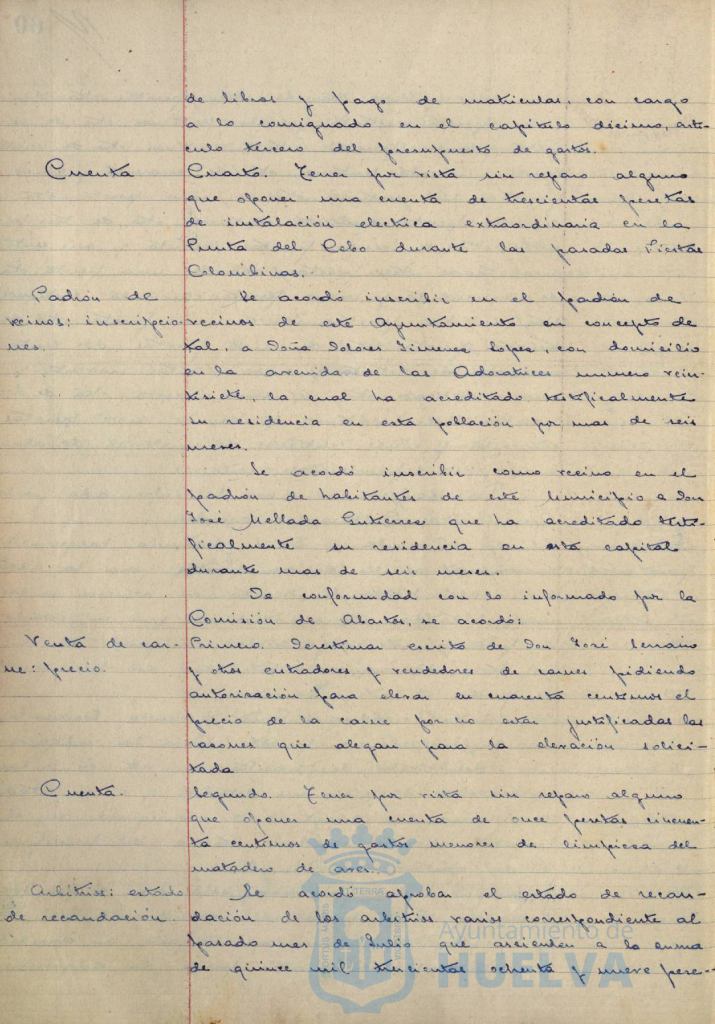 de libros y pago de matriculas, con cargo
a lo consignado en el capitulo décimo, arti-
culo tercero del presupuesto de gastos.
Cuenta
Cuarto. Tener por vista sin reparo alguno
que oponer una cuenta de trescientas pesetas
de instalación electrica extraordinaria en la
Punta del Sebo durante las pasadas Fiestas
Colombinas.-
Padrón de
vecinos: inscripcio-
nes.
Se acordó inscribir en el padrón de
vecinos de este Ayuntamiento en concepto de
tal, a Doña Dolores Jimenez Lopez, con domicilio
en la avenida de las Adoratrices numero vein-
tisiete, la cual ha acreditado testificalmente
su residencia en esta población por mas de seis
meses.
Se acordó inscribir como vecino en el
padrón de habitantes de este Municipio a Don
José Mellada Gutierrez que ha acreditado testi-
ficalmente su residencia en esta capital
durante mas de seis meses.
De conformidad con lo informado por la
Comisión de Abastos, se acordó:
Venta de car-
ne: precio.
Primero. Desestimar escrito de Don José Serrano
y otros entradores y vendedores de carnes pidiendo
autorización para elevar en cuarenta centimos el
precio de la carne por no estar justificadas las
razones que alegan para la elevación solici-
tada
Cuenta.
Segundo. Tener por vista sin reparo alguno
que oponer una cuenta de once pesetas cincuen-
ta centimos de gastos menores de limpieza del
matadero de aves.
Arbitrios: estado
de recaudación.
Se acordó aprobar el estado de recau-
dación de los arbitrios varios correspondiente al
pasado mes de Julio que asciende a la suma
de quince mil trescientas ochenta y nueve pese-
Ayuntamiento de
HUELVA